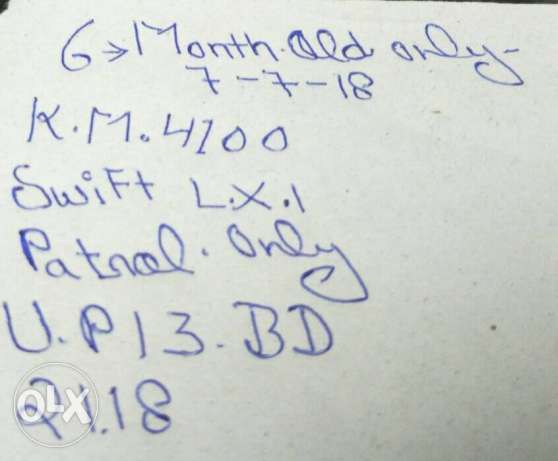 6 → Month. Old only -
7-7-18
K.M. 4100
Swift L.X.I
Patrol. Only
U.P 13. BD
21.18
OLX